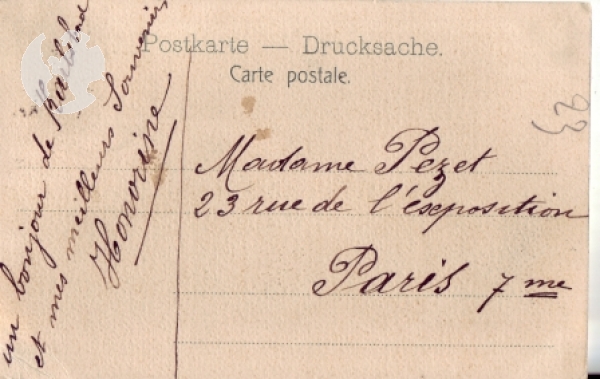 Postkarte — Drucksache.
Carte postale.
un bonjour de Karlsbad
et mes meilleurs Souvenirs
Honorine
Madame Pezet
23 rue de l'exposition
Paris 7me
23